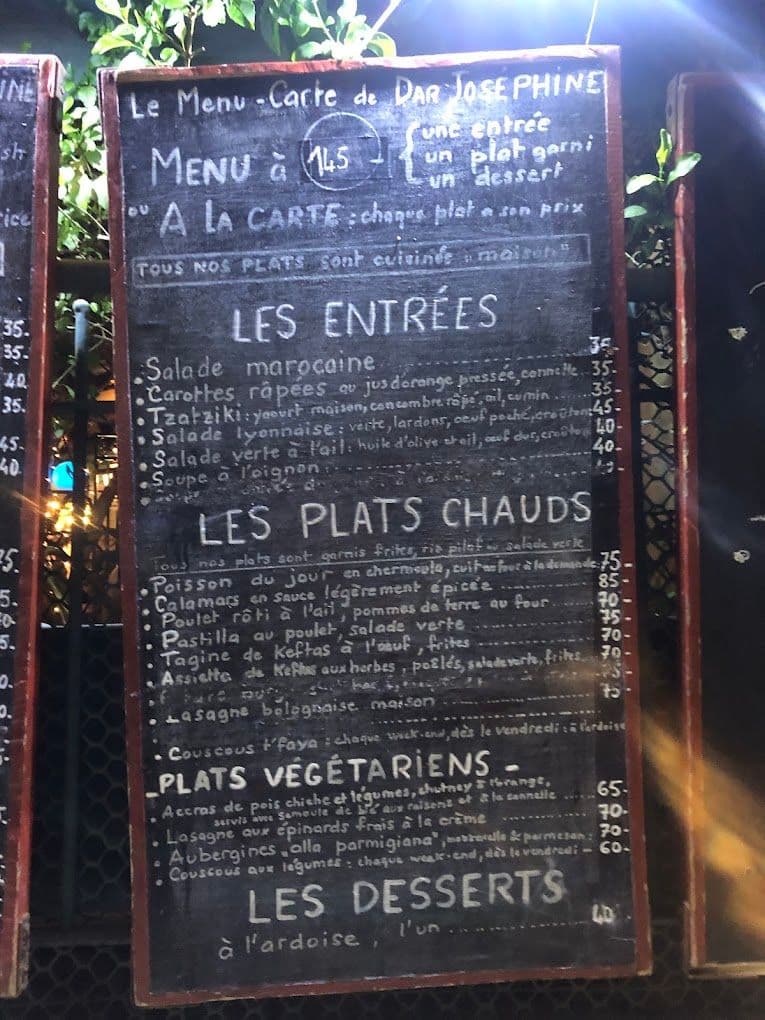 Le Menu - Carte de DAR JOSEPHINE
MENU à 145 - { une entrée
un plat garni
un dessert
ou A LA CARTE : chaque plat a son prix
TOUS NOS PLATS sont cuisinés "maison"
LES ENTRÉES
• Salade marocaine 35-
• Carottes râpées au jus d'orange pressée, cannelle 35-
• Tzatziki : yaourt maison, concombre râpé, ail, cumin 35-
• Salade lyonnaise : verte, lardons, oeuf poché, croûtons 45-
• Salade verte à l'ail : huile d'olive et ail, oeuf dur, croûtons 40-
• Soupe à l'oignon 40-
LES PLATS CHAUDS
Tous nos plats sont garnis frites, riz pilaf ou salade verte
• Poisson du jour en chermoula, cuit au four à la demande 75-
• Calamars en sauce légèrement épicée 85-
• Poulet rôti à l'ail, pommes de terre au four 70-
• Pastilla au poulet, salade verte 75-
• Tagine de Keftas à l'oeuf, frites 70-
• Assiette de Keftas aux herbes, poêlés, salade verte, frites 70-
• Lasagne bolognaise maison 75-
• Couscous t'faya : chaque week-end, dès le vendredi : à l'ardoise
- PLATS VÉGÉTARIENS -
• Accras de pois chiche et légumes, chutney à l'orange,
servis avec semoule de blé aux raisons et à la cannelle 65-
• Lasagne aux épinards frais à la crème 70-
• Aubergines "alla parmigiana", mozzarella & parmesan : 70-
• Couscous aux légumes : chaque week-end, dès le vendredi - 60-
LES DESSERTS
à l'ardoise, l'un 40-
INE
sh
rice
35-
35-
40
35.
45
40